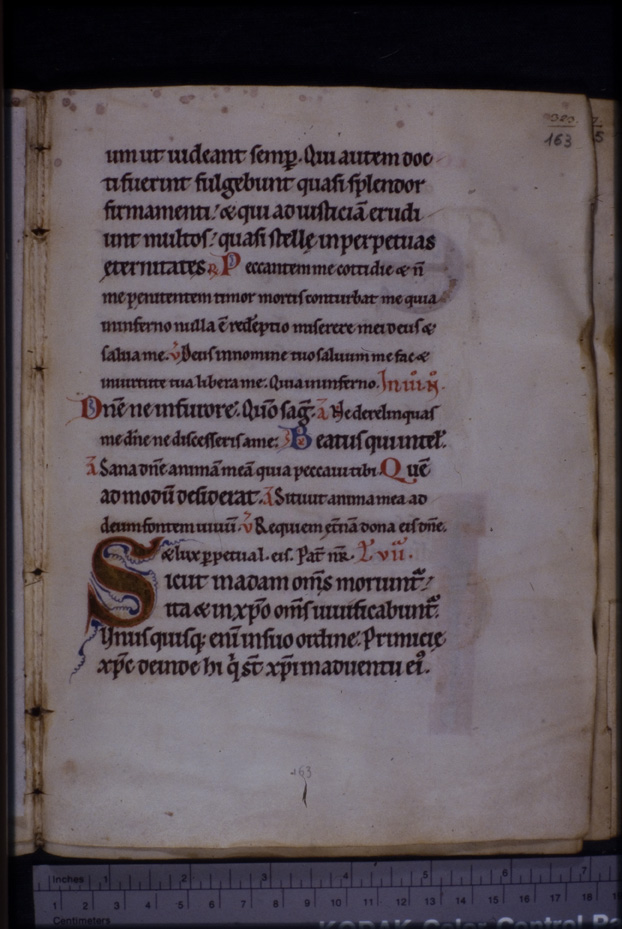 163
5
um ut uideant semꝑ. Qui autem doc
ti fuerint fulgebunt quasi splendor
firmamenti/ & qui ad iusticiā erudi
unt multos/ quasi stellę in perpetuas
ęternitates. R P eccantem me cottidie & ñ
me penitentem timor mortis conturbat me quia
in inferno nulla ē redēptio miserere mei deus &
salua me. ℣ Deus in nomine tuo saluum me fac &
in uirtute tua libera me. Quia in inferno. In .iii. N.
Dñe ne in furore. Quō sag̃. ā Ne derelinquas
me dñe ne discesseris a me. ps Beatus qui intel̃.
ā Sana dñe animā meā quia peccaui tibi. Q uē
ad modū desiderat. ā Sitiuit anima mea ad
deum fontem uiuū. ℣ Requiem et̃nā dona eis dñe.
& lux ꝑpetual. eis. Pat̃ nr̃. L vii.
Sicut in adam om̄s moriunt̃/
ita & in xp̃o om̄s uiuificabunt̃.
Vnusquisq; enī in suo ordine. Primicię
xp̃c deinde hi q̇ st̄ xp̃i in aduentu ei᾽.
163
Inches 1 2 3 4 5 6 7
1 2 3 4 5 6 7 8 9 10 11 12 13 14 15 16 17 18
Centimeters
KODAK Color Control Pa